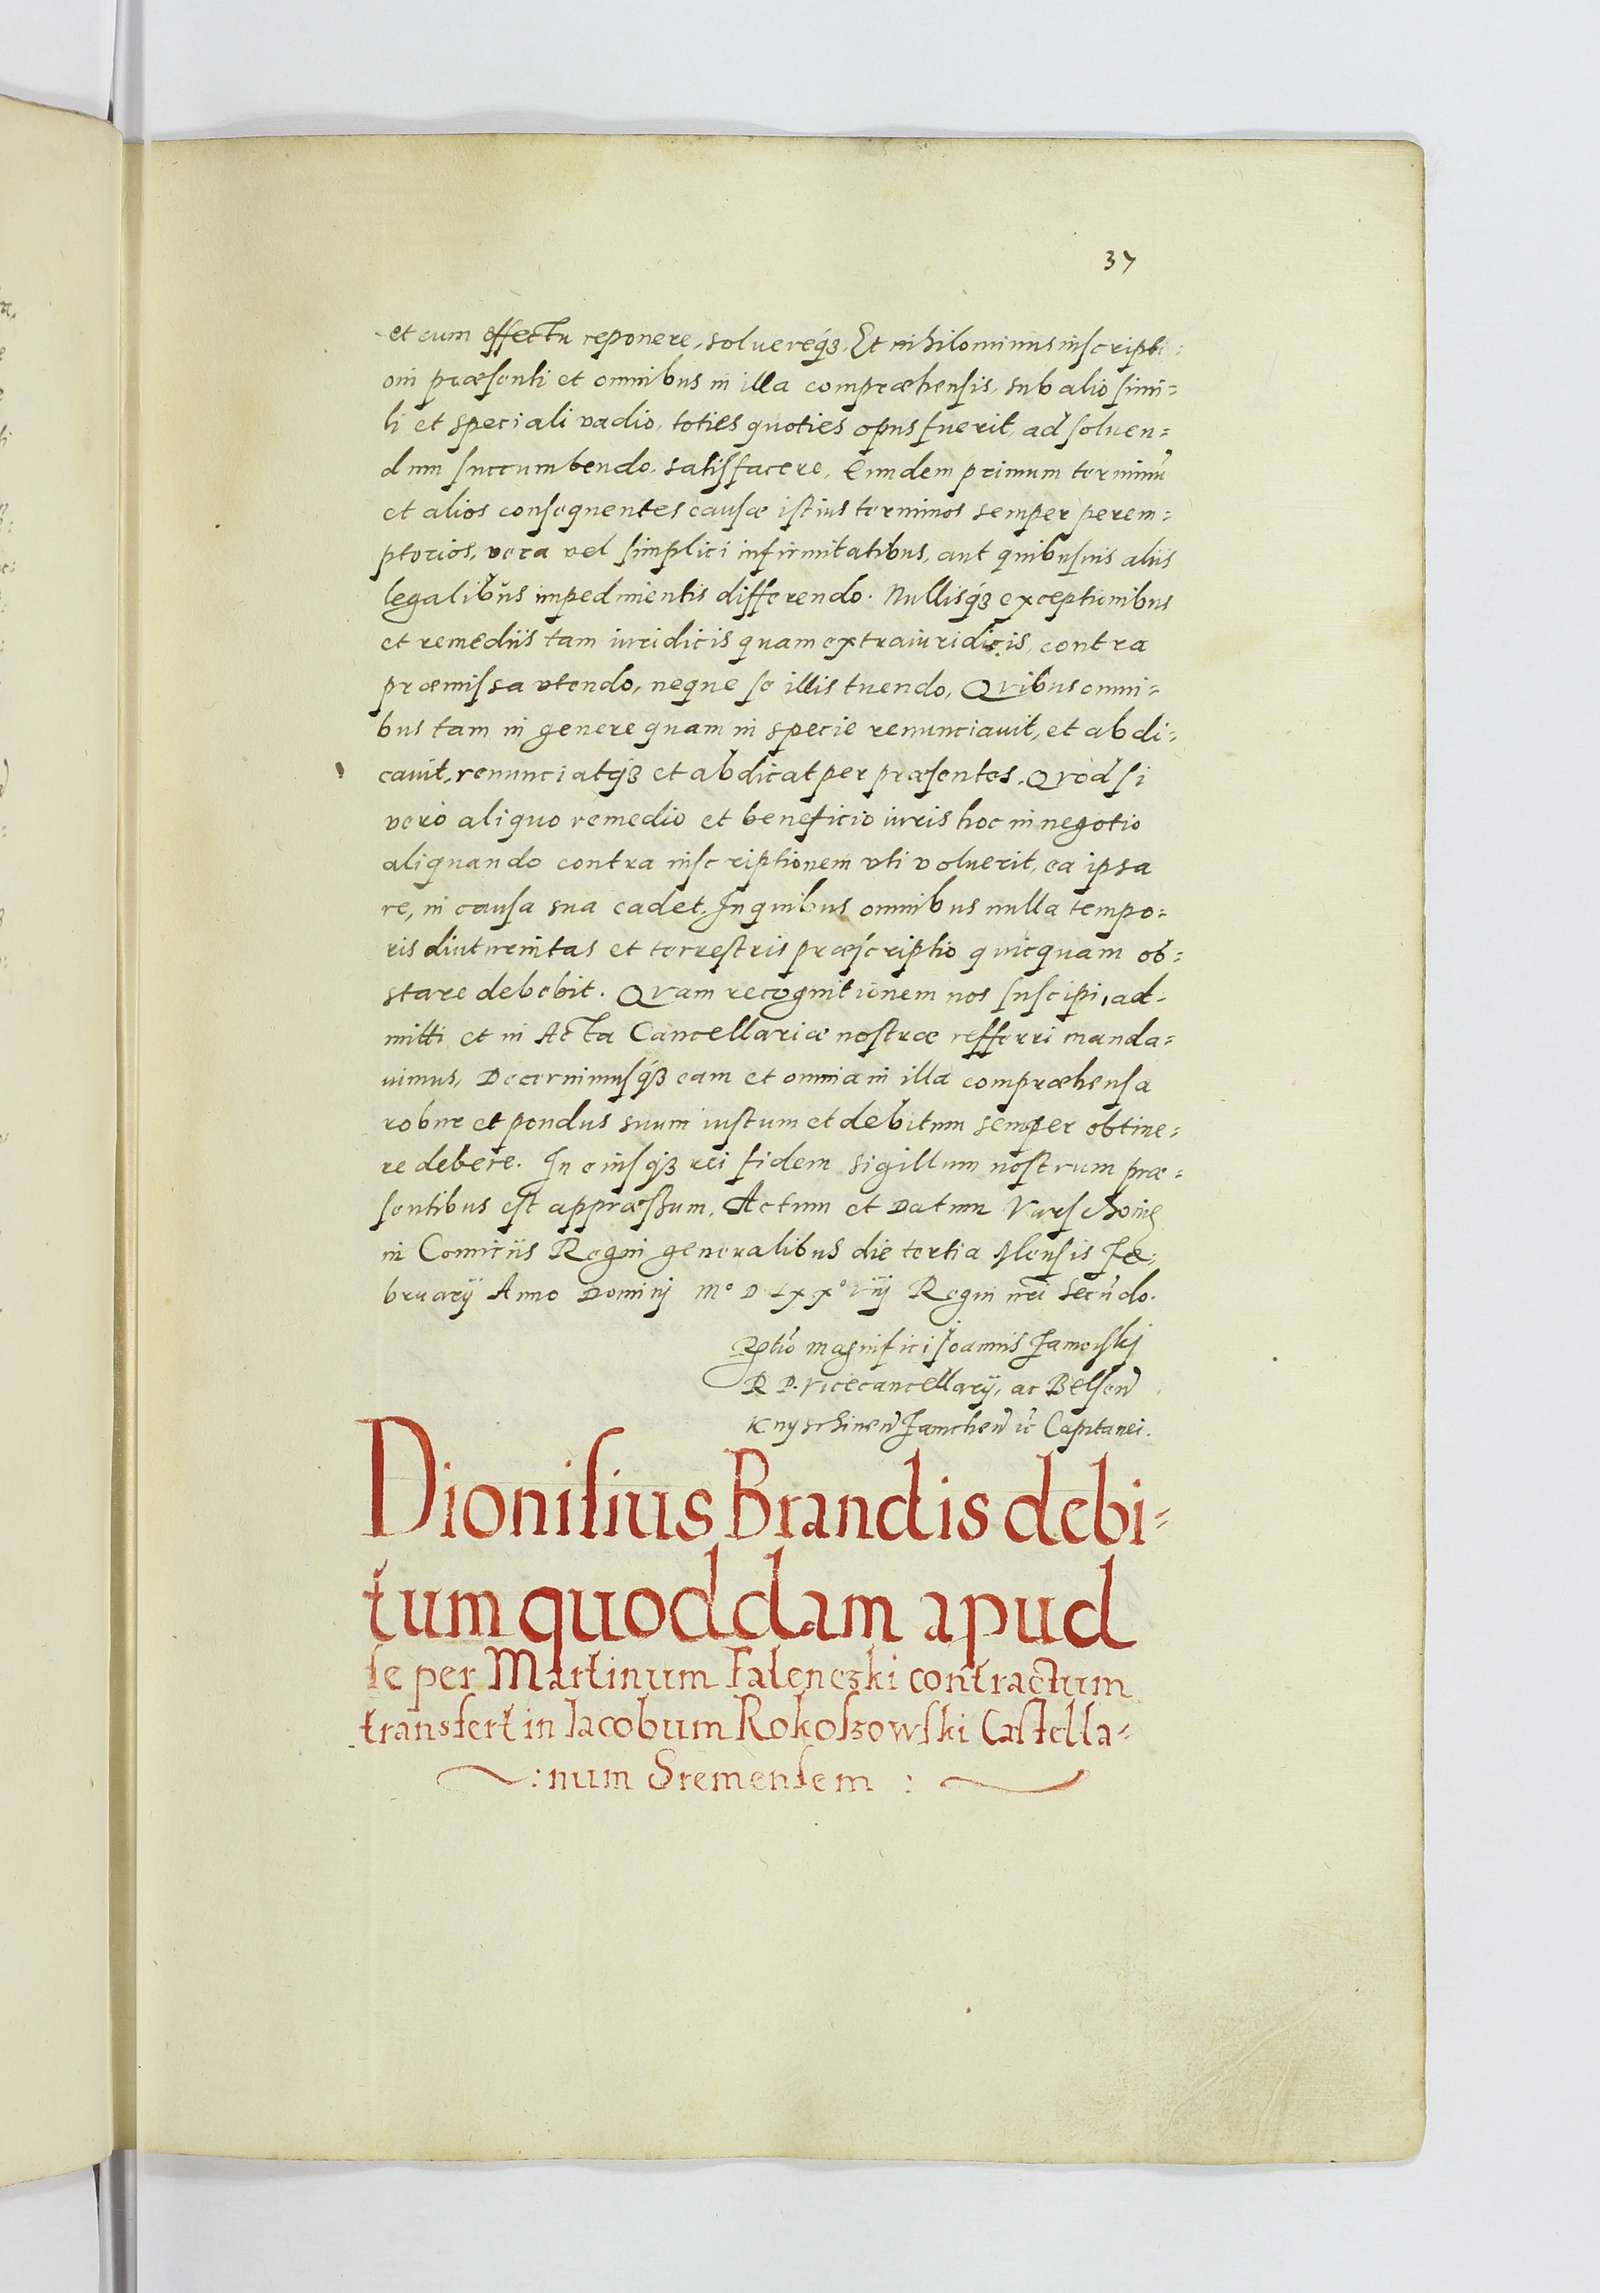 37
et cum effectu reponere, soluereq́ꝫ. Et nihilominus inscripti=
oni præsenti et omnibus in illa compræhensis, sub alio simi=
li et speciali vadio, toties quoties opus fuerit, ad soluen=
dum succumbendo, satisfacere. Eundem primum terminū
et alios consequentes causæ istius terminos semper perem=
ptorios, vera vel simplici infirmitatibus, aut quibusuis aliis
legalibus impedimentis differendo. Nullisq́ꝫ exceptionibus
et remediis tam iuridicis quam extraiuridicis, contra
præmissa vtendo, neque se illis tuendo, Quibus omni=
bus tam in genere quam in specie renunciauit, et abdi=
cauit, renunciatq́ꝫ et abdicat per præsentes. Quod si
vero aliquo remedio et beneficio iuris hoc in negotio
aliquando contra inscriptionem vti voluerit, ea ipsa
re, in causa sua cadet. In quibus omnibus nulla tempo=
ris diuturnitas et terrestris præscriptio quicquam ob=
stare debebit. Quam recognitionem nos suscipi, ad=
mitti et in Acta Cancellariæ nostræ refferri manda=
uimus, Decernimusq́ꝫ eam et omnia in illa compræhensa
robur et pondus suum iustum et debitum semper obtine=
re debere. In cuiusq́ꝫ rei fidem sigillum nostrum præ=
sentibus est appræssum. Actum et Datum Varschoviæ
in Comitiis Regni generalibus die tertia Mensis Fe=
bruarij Anno Domini Mº D LXXº viij Regni nr̄i Secūdo.
Rtio magnifici Joannis Zamoyskj
R P. Vicecancellarij, ac Belsen̄
Knyschinen̄ Zamchen̄ &c Capitanei.
Dionisius Brandis debi=
tum quoddam apud
se per Martinum Falenczki contractum
transfert in Iacobum Rokoszowski Castella=
:num Sremensem :